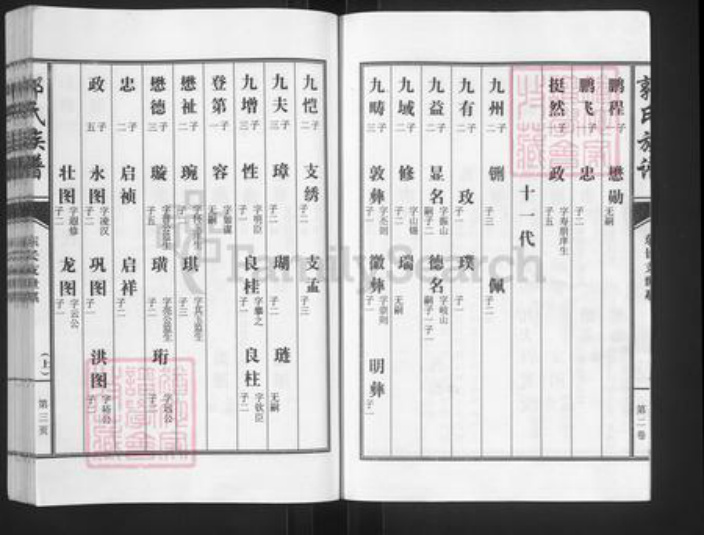 鹏程 子 懋勋 无嗣
鹏飞 子 忠 子二
挺然 子 政 字寿朋庠生 子五
十一代
九州 二子 铏 子三 佩 子二
九有 二子 玫 子一 璞 子一
九益 二子 显名 字振山 嗣子二 德名 字岐山 嗣子一子一
九域 二子 修 字山锡 子二 瑞 无嗣
九畴 三子 敦彝 字杰则 子一 徽彝 字崇则 子一 明彝 子二
第二卷
九恺 二子 支绣 子一 支孟 子三
九夫 三子 璋 子二 瑚 子二 琏 无嗣
九增 三子 性 字明臣 子一 良桂 字攀之 子一 良柱 字钦臣 子二
登第 一子 容 无嗣
懋祉 二子 琬 子二 琪 子三
懋德 三子 璇 子五 璜 子一 珩 字远公 子二
忠 二子 启祯 子一 启祥 子二
政 五子 永图 字凌汉 子二 巩图 子一 洪图 字裕公 子二
壮图 子二 龙图 字云公 子一
郭氏族谱
（上）
第三页
FamilySearch